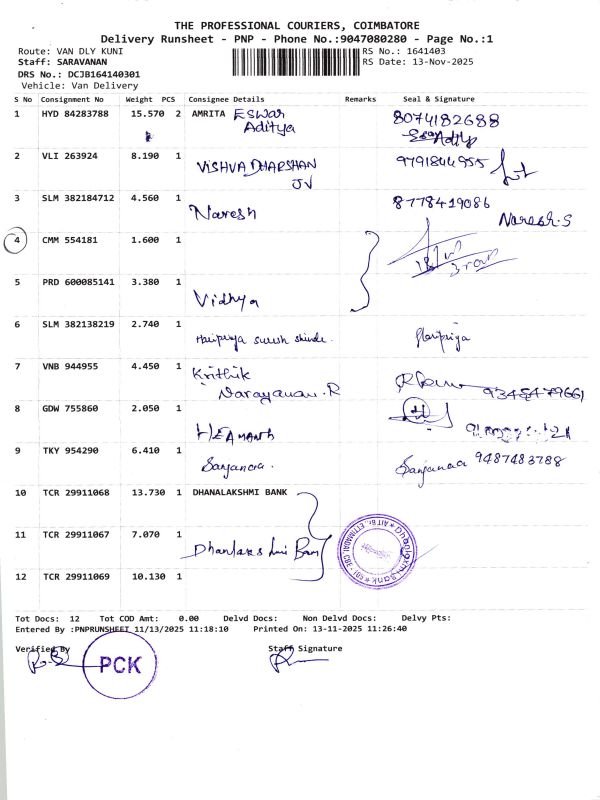 THE PROFESSIONAL COURIERS, COIMBATORE
Delivery Runsheet - PNP - Phone No.:9047080280 - Page No.:1
Route: VAN DLY KUNI
RS No.: 1641403
Staff: SARAVANAN
RS Date: 13-Nov-2025
DRS No.: DCJB164140301
Vehicle: Van Delivery
S No Consignment No Weight PCS Consignee Details Remarks Seal & Signature
1 HYD 84283788 15.570 2 AMRITA Eswar 8074182688
Aditya
2 VLI 263924 8.190 1 VISHVA DHARSHAN 9791844955
JV
3 SLM 382184712 4.560 1 Naresh 8778419086
Naresh.S
4 CMM 554181 1.600 1
5 PRD 600085141 3.380 1 Vidhya
6 SLM 382138219 2.740 1 Haripriya suresh shinde. Haripriya
7 VNB 944955 4.450 1 Krithik
Narayanan.R 9345479661
8 GDW 755860 2.050 1 HEAMANTH
9 TKY 954290 6.410 1 Sanjanaa. Sanjanaa 9487483788
10 TCR 29911068 13.730 1 DHANALAKSHMI BANK
11 TCR 29911067 7.070 1 Dhanlakshmi Bank
12 TCR 29911069 10.130 1
Tot Docs: 12 Tot COD Amt: 0.00 Delvd Docs: Non Delvd Docs: Delvy Pts:
Entered By :PNPRUNSHEET 11/13/2025 11:18:10 Printed On: 13-11-2025 11:26:40
Verified By Staff Signature
PCK